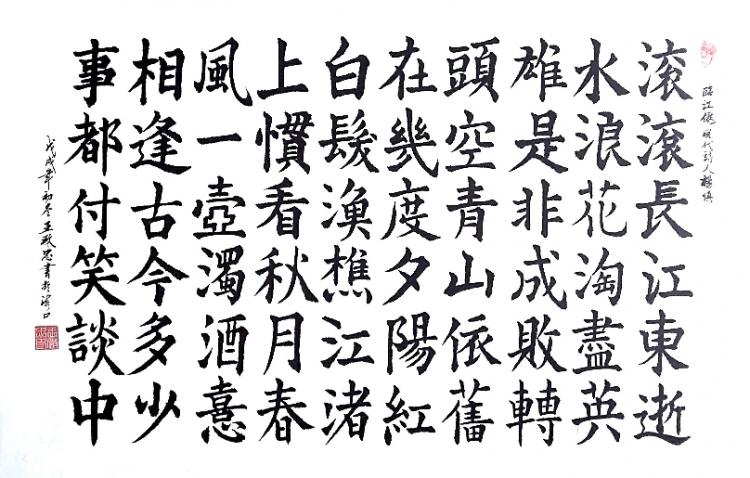 臨江僊 明代詩人楊慎
滚滚長江東逝
水浪花淘盡英
雄是非成敗轉
頭空青山依舊
在幾度夕陽紅
白髮漁樵江渚
上慣看秋月春
風一壺濁酒憙
相逢古今多少
事都付笑談中
戊戌年初冬王政忠書於口